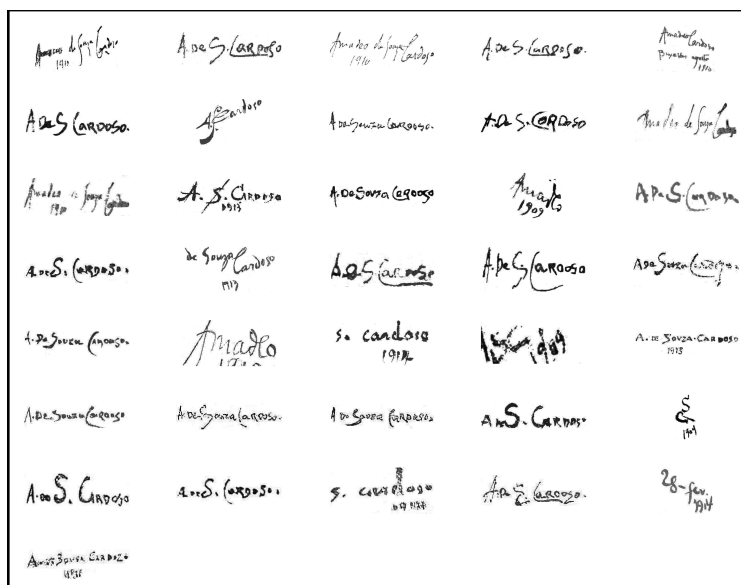 Amadeo de Souza Cardoso
1910
A. De S. CARDOSO
Amadeo de Souza Cardoso
1910
A. De S. CARDOSO.
Amadeo Cardoso
1910
A De S CARDOSO.
A. S Cardoso
A De Souza CARDOSO.
A. De S. CARDOSO
Amadeo de Souza Cardoso
Amadeo de Souza Cardoso
1910
A. S. CARDOSO
1913
A. De Sousa CARDOSO
1909
A De S. CARDOSO
A. De S. CARDOSO.
de Souza Cardoso
1913
S CARDOSO
A. De S CARDOSO
A De Souza Cardoso.
A. De Souza CARDOSO.
Amadeo
s. cardoso
1909
A. DE SOUZA-CARDOSO
1913
A. De Souza CARDOSO
A. De Souza CARDOSO.
A De Souza CARDOSO.
S. CARDOSO
S
A. S. CARDOSO
A. De S. CARDOSO.
s. cardoso
A. De S. CARDOSO.
28-fev.
SOUSA CARDOZO